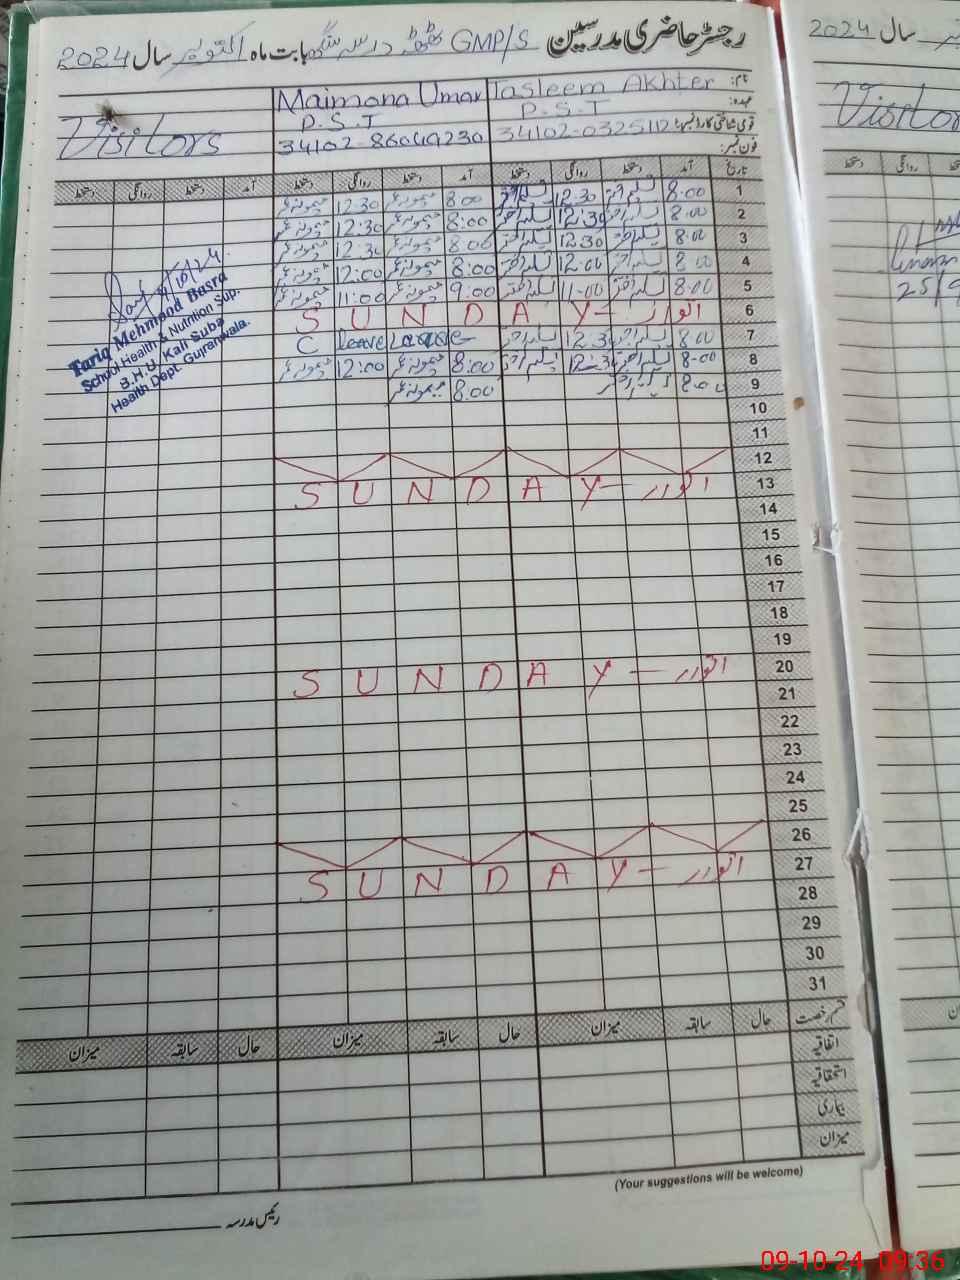 رجسٹر حاضری مدرسین GMP/S ٹھٹھہ درسہ سنگھ بابت ماہ اکتوبر سال 2024
نام: Tasleem Akhter Maimona Umar
عہدہ: P.S.T P.S.T Visitors
قومی شناختی کارڈ نمبر: 34102-0325112 34102-86049230
فون نمبر:
تاریخ آمد دستخط روانگی دستخط آمد دستخط روانگی دستخط آمد دستخط روانگی دستخط
1 8:00 تسلیم اختر 12:30 تسلیم اختر 8:00 میمونہ عمر 12:30 میمونہ عمر
2 8:00 تسلیم اختر 12:30 تسلیم اختر 8:00 میمونہ عمر 12:30 میمونہ عمر
3 8:00 تسلیم اختر 12:30 تسلیم اختر 8:00 میمونہ عمر 12:30 میمونہ عمر
4 8:00 تسلیم اختر 12:00 تسلیم اختر 8:00 میمونہ عمر 12:00 میمونہ عمر
5 8:00 تسلیم اختر 11-00 تسلیم اختر 9:00 میمونہ عمر 11:00 میمونہ عمر
6 SUNDAY — اتوار
7 8:00 تسلیم اختر 12:3 تسلیم اختر C leave Leave
8 8-00 تسلیم اختر 12:3 تسلیم اختر 8:00 میمونہ عمر 12:00 میمونہ عمر
9 8:00 تسلیم اختر 8:00 میمونہ عمر
4/10/24
Tariq Mehmood Basra
School Health & Nutrition Sup.
B.H.U Kali Suba
Health Dept. Gujranwala.
10
11
12
13 SUNDAY — اتوار
14
15
16
17
18
19
20 SUNDAY — اتوار
21
22
23
24
25
26
27 SUNDAY — اتوار
28
29
30
31
قسم رخصت حال سابقہ میزان حال سابقہ میزان حال سابقہ میزان
اتفاقیہ
استحقاقیہ
بیماری
میزان
(Your suggestions will be welcome)
رئیس مدرسہ
سال 2024
Visitor
دستخط روانگی
25/9
09-10-24 09:36